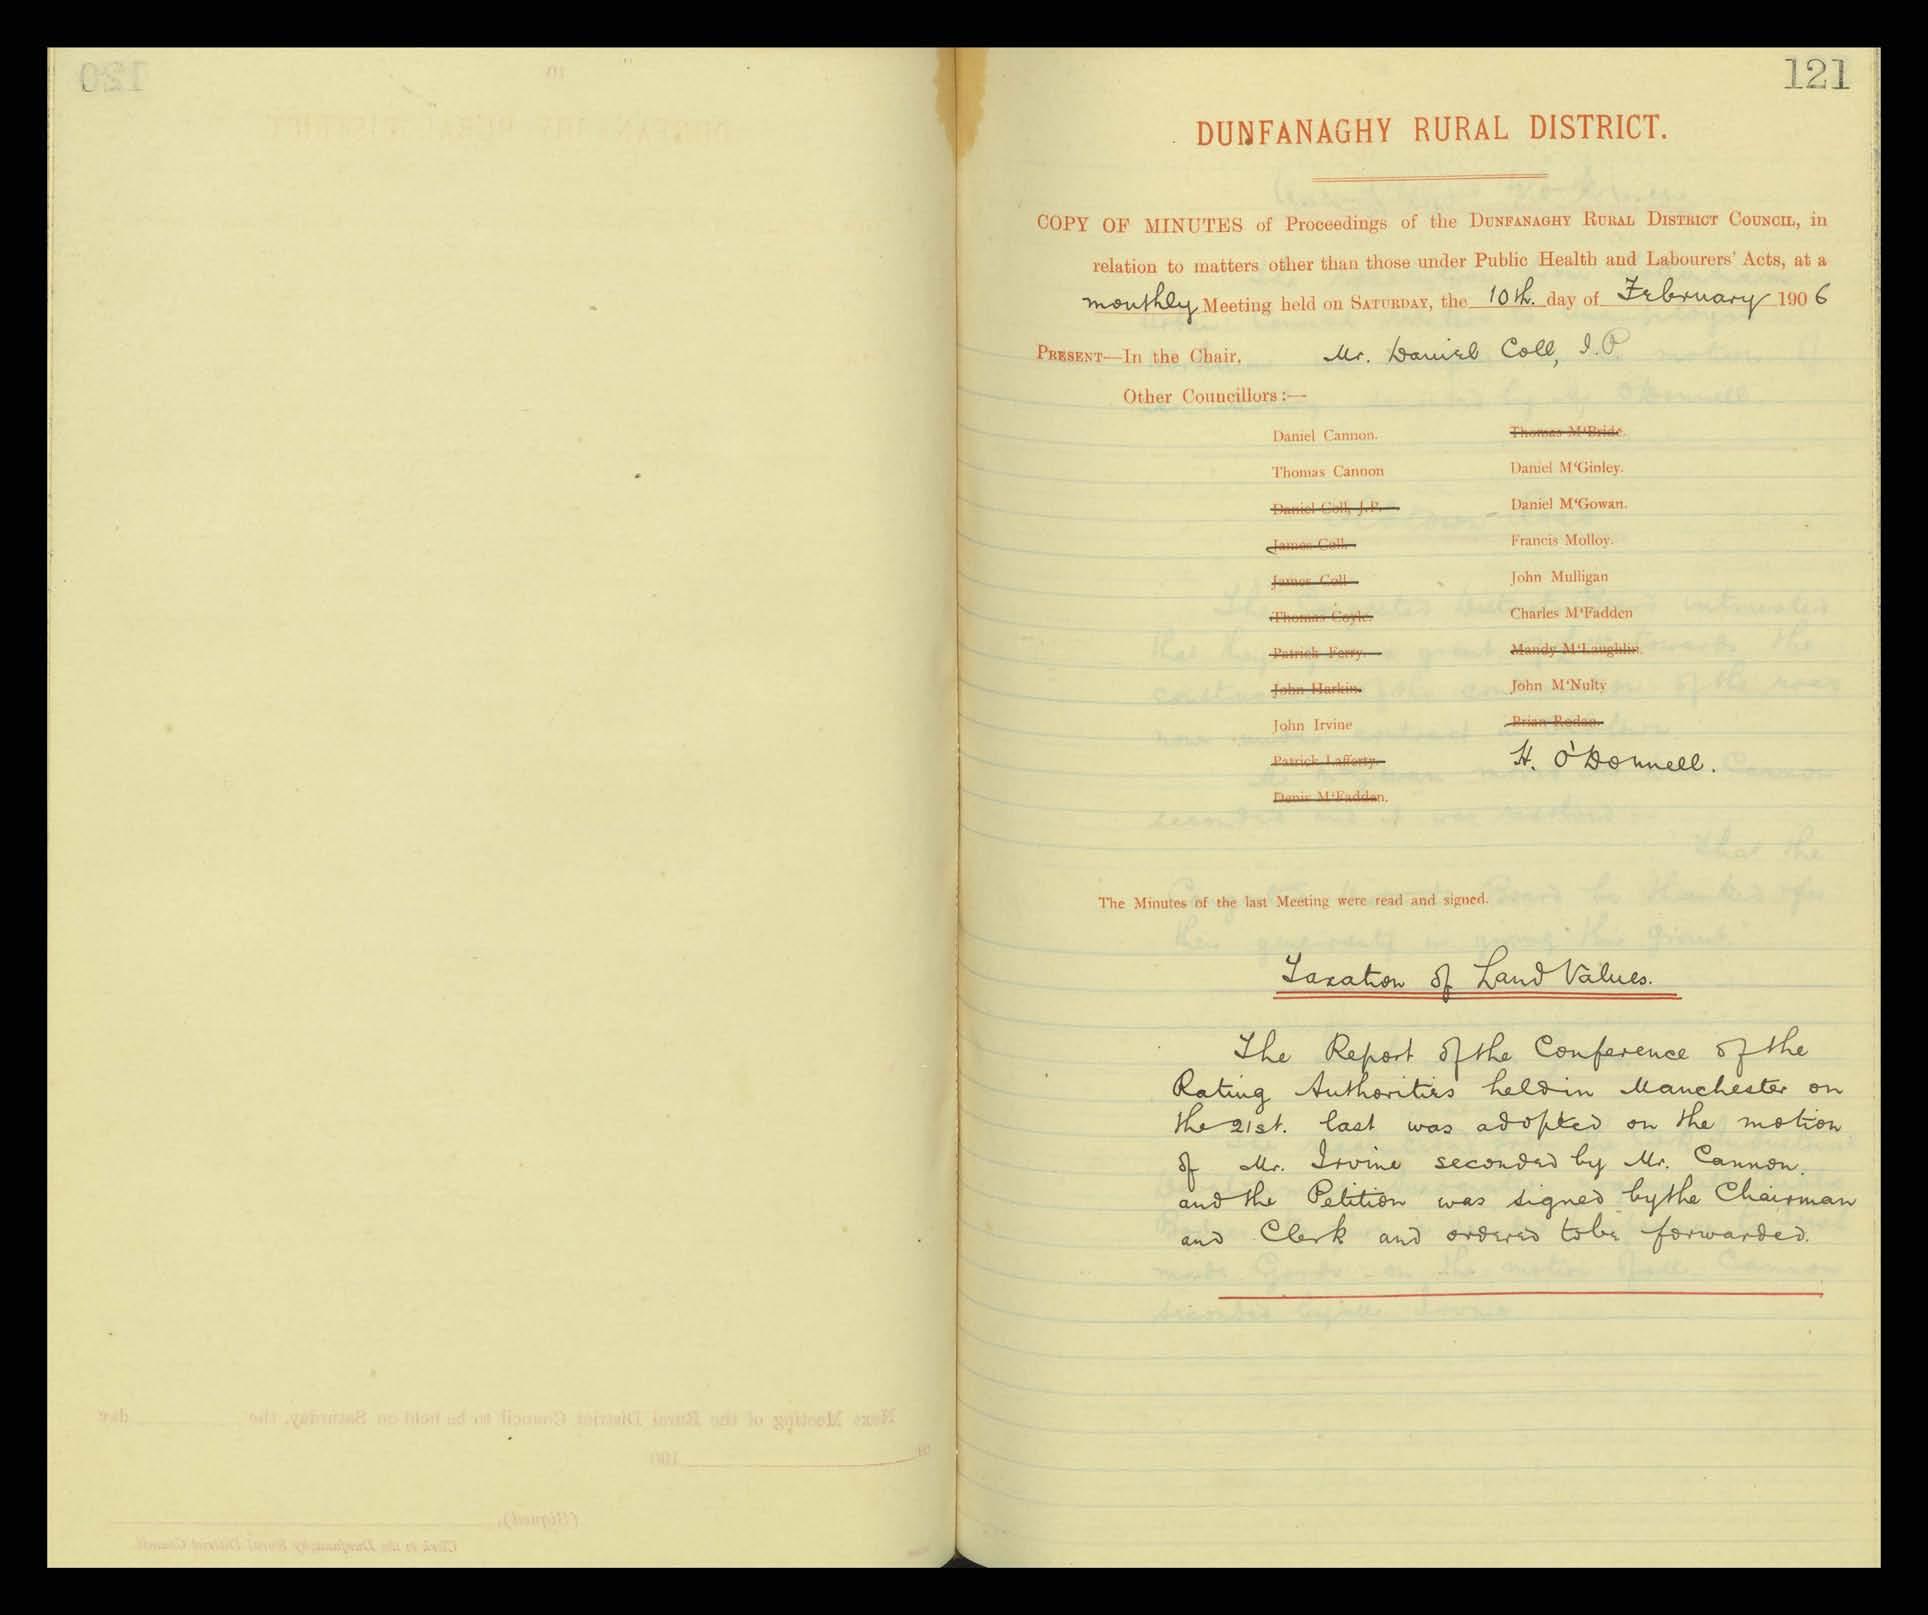 121
DUNFANAGHY RURAL DISTRICT.
COPY OF MINUTES of Proceedings of the DUNFANAGHY RURAL DISTRICT COUNCIL, in
relation to matters other than those under Public Health and Labourers' Acts, at a
monthly Meeting held on SATURDAY, the 10th. day of February 1906
PRESENT—In the Chair, Mr. Daniel Coll, J.P.
Other Councillors:—
Daniel Cannon.
Thomas Cannon
Daniel Coll, J.P.
James Coll.
James Coll
Thomas Coyle.
Patrick Ferry.
John Harkin.
John Irvine
Patrick Lafferty.
Denis M'Fadden.
Thomas M'Bride.
Daniel M'Ginley.
Daniel M'Gowan.
Francis Molloy.
John Mulligan
Charles M'Fadden
Mandy M'Laughlin.
John M'Nulty
Brian Rodan.
H. O'Donnell.
The Minutes of the last Meeting were read and signed.
Taxation of Land Values.
The Report of the Conference of the
Rating Authorities held in Manchester on
the 21st. last was adopted on the motion
of Mr. Irvine seconded by Mr. Cannon.
and the Petition was signed by the Chairman
and Clerk and ordered to be forwarded.
120
Next Meeting of the Rural District Council to be held on Saturday, the day
of 190
(Signed),
Clerk to the Dunfanaghy Rural District Council.